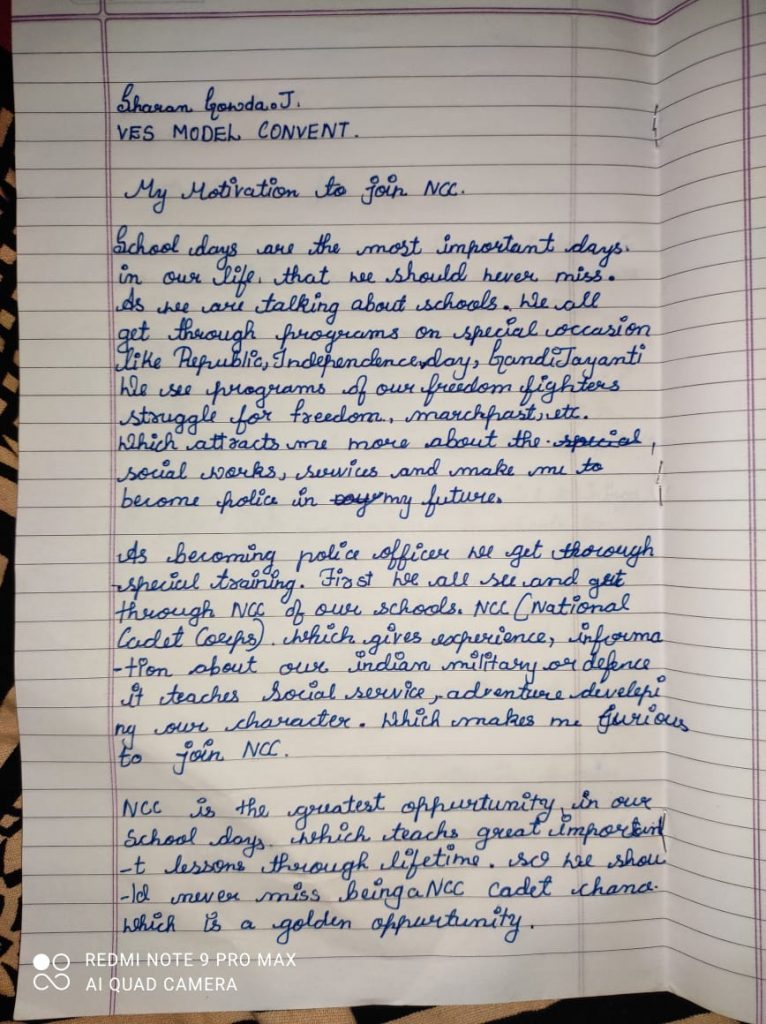 Sharan Gowda.J.
VES MODEL CONVENT.
My Motivation to join NCC.
School days are the most important days.
in our life, that we should never miss.
As we are talking about schools. We all
get through programs on special occasion
like Republic, Independence day, Gandi Jayanti
We see programs of our freedom fighters
struggle for freedom, marchpast, etc.
Which attracts me more about the special,
social works, services and make me to
become police in my future.
As becoming police officer we get thorough
special training. First we all see and get
through NCC of our schools. NCC (National
Cadet Coeps). which gives experience, informa
-tion about our indian military or defence
it teaches Social service, adventure developi
ng our character. Which makes me furious
to join NCC.
NCC is the greatest oppurtunity, in our
School days. which teachs great importan
-t lessons through lifetime. so we shou
-ld never miss being a NCC cadet chanc.
which is a golden oppurtunity.
REDMI NOTE 9 PRO MAX
AI QUAD CAMERA